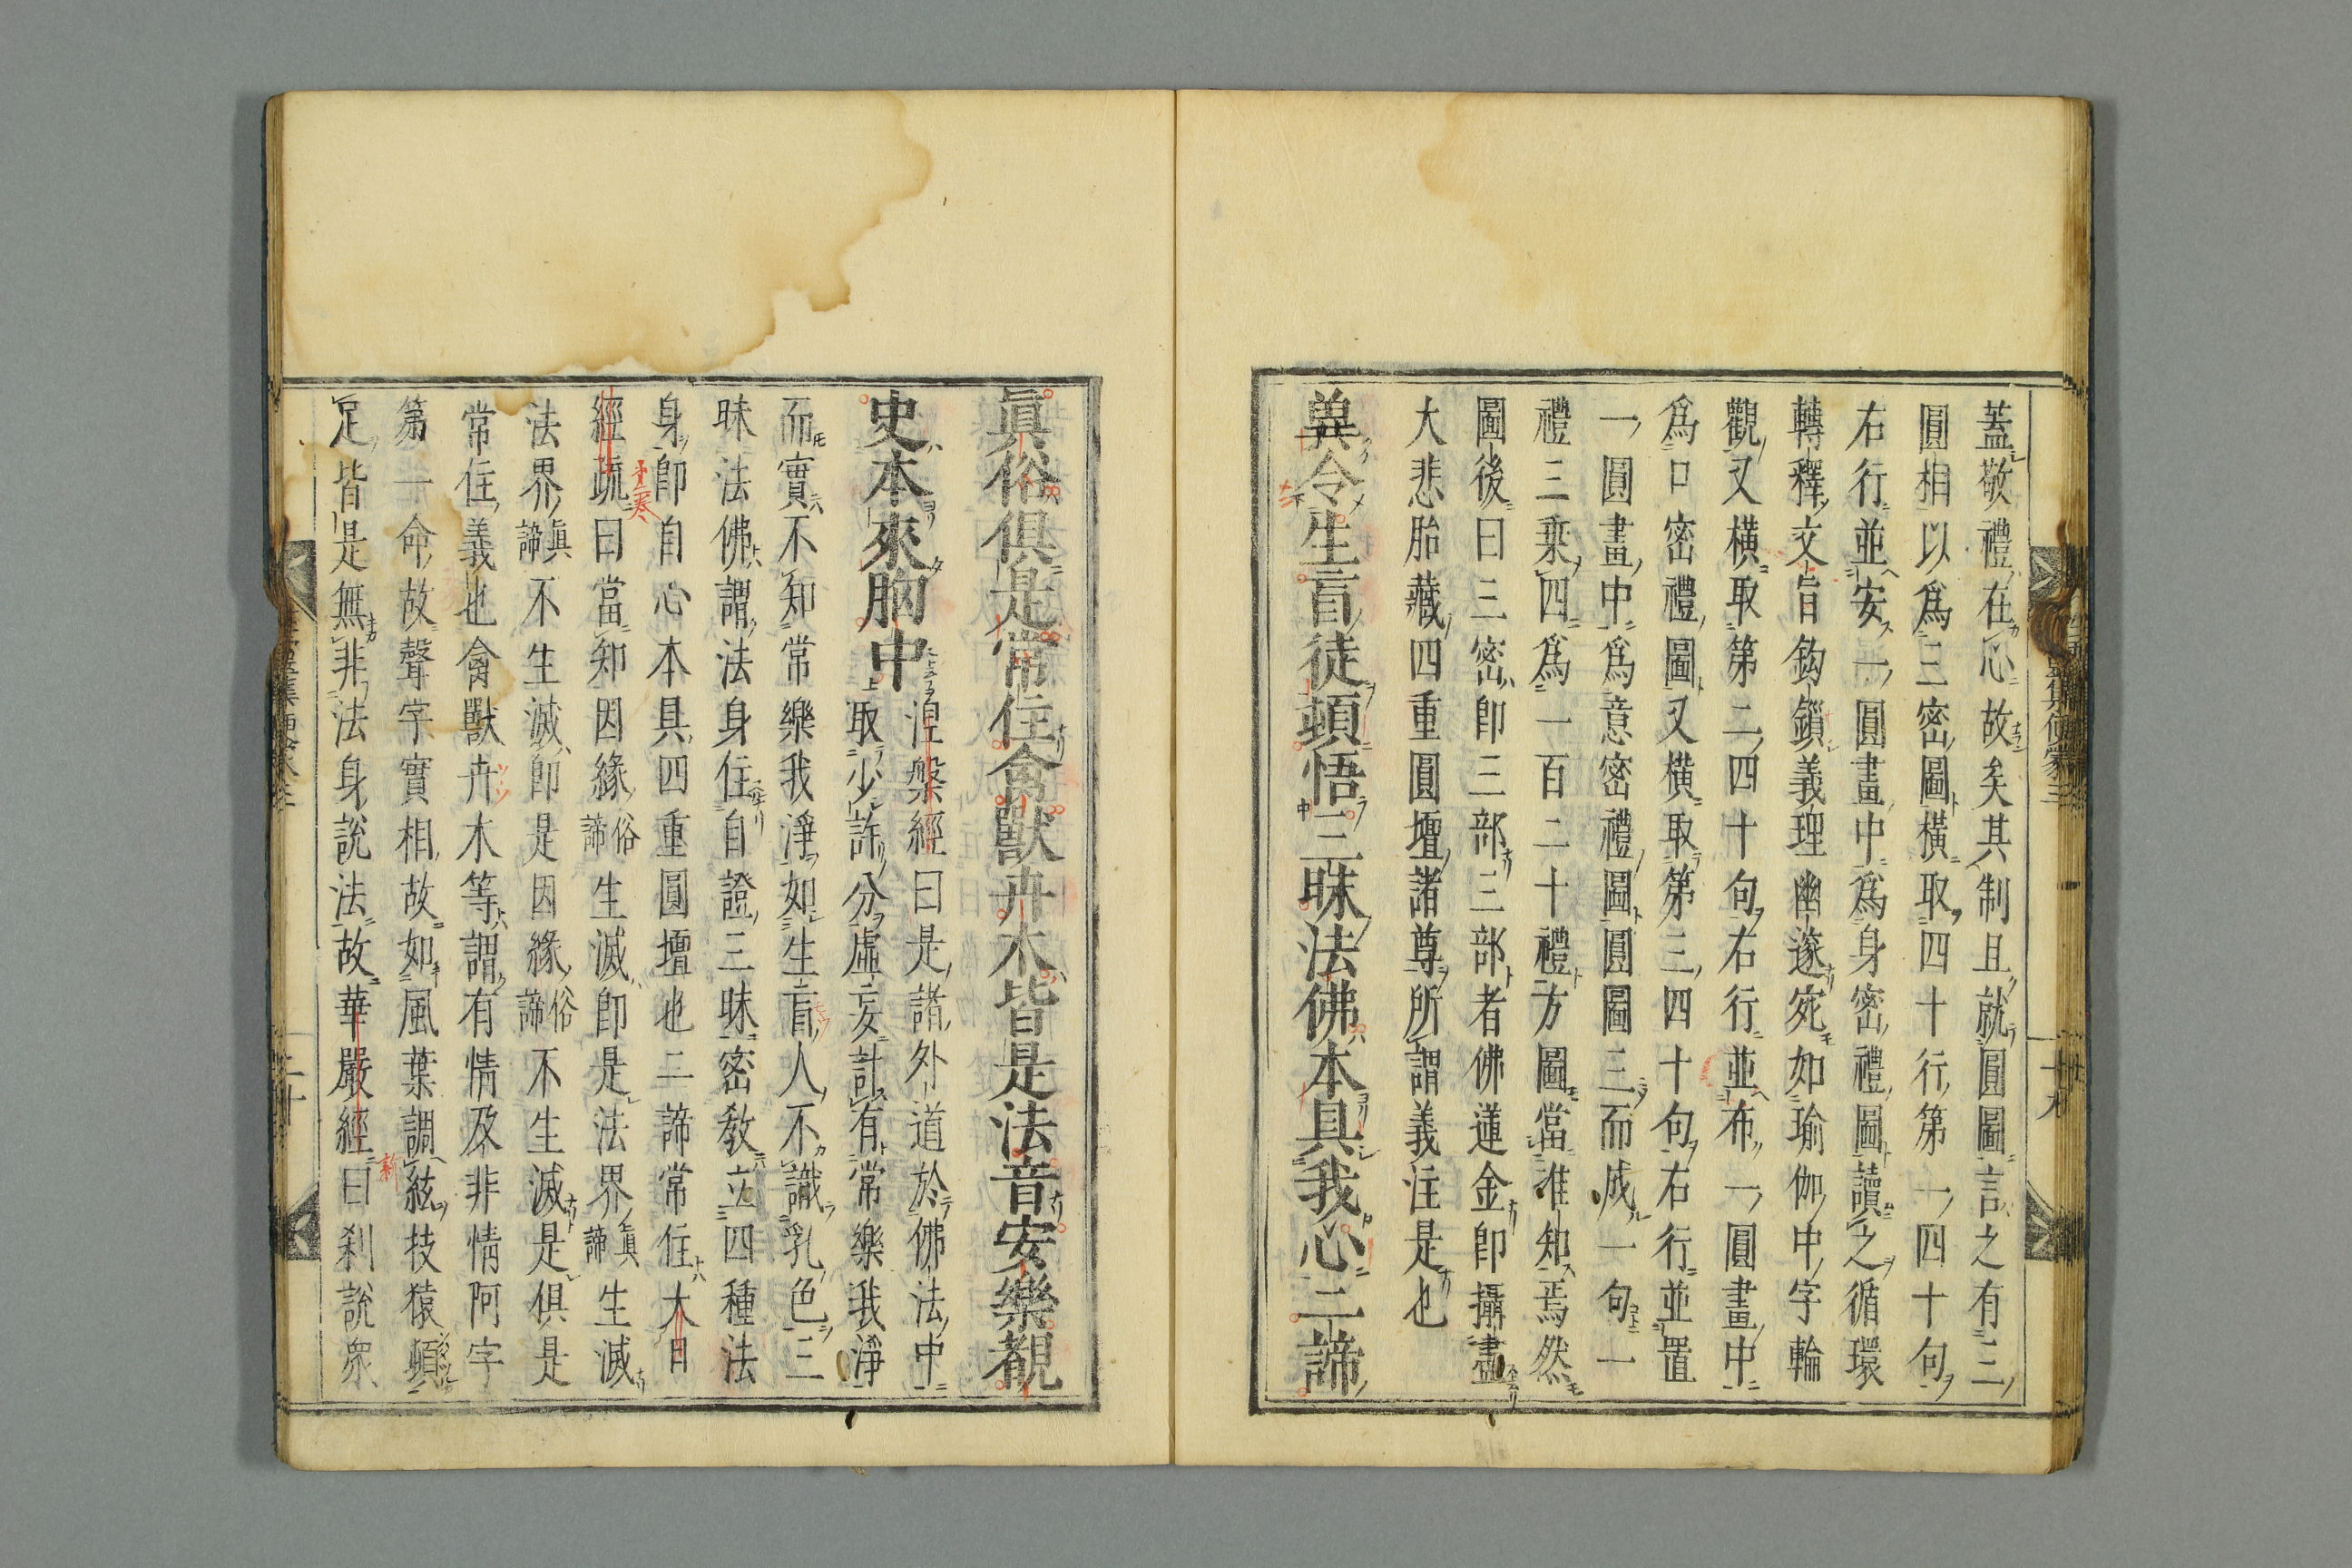 蓋敬禮在心故矣其制且就圓圖言之有三
圓相以爲三密圖橫取四十行第一四十句
右行並安一圓畫中爲身密禮圖讀之循環
轉釋文旨鈎鎖義理幽邃宛如瑜伽中字輪
觀又橫取第二四十句右行並布一圓畫中
爲口密禮圖又橫取第三四十句右行並置
一圓畫中爲意密禮圖圓圖三而成一句一
禮三乘四爲一百二十禮方圖當准知焉然
圖後曰三密即三部三部者佛蓮金即攝盡
大悲胎藏四重圓壇諸尊所謂義注是也
兾令生盲徒頓悟三昧法佛本具我心二諦
眞俗俱是常住禽獸卉木皆是法音安樂覩
史本來胸中
涅槃經曰是諸外道於佛法中
取少許分虛妄計有常樂我淨
而實不知常樂我淨如生盲人不識乳色三
昧法佛謂法身住自證三昧密教立四種法
身即自心本具四重圓壇也二諦常住大日
經疏曰當知因緣俗諦生滅即是法界眞諦生滅
法界眞諦不生滅即是因緣俗諦不生滅是俱是
常住義也禽獸卉木等謂有情及非情阿字
第一命故聲字實相故如風葉調絃技猿頓
足皆是無非法身說法故華嚴經曰刹說衆
十九
二十